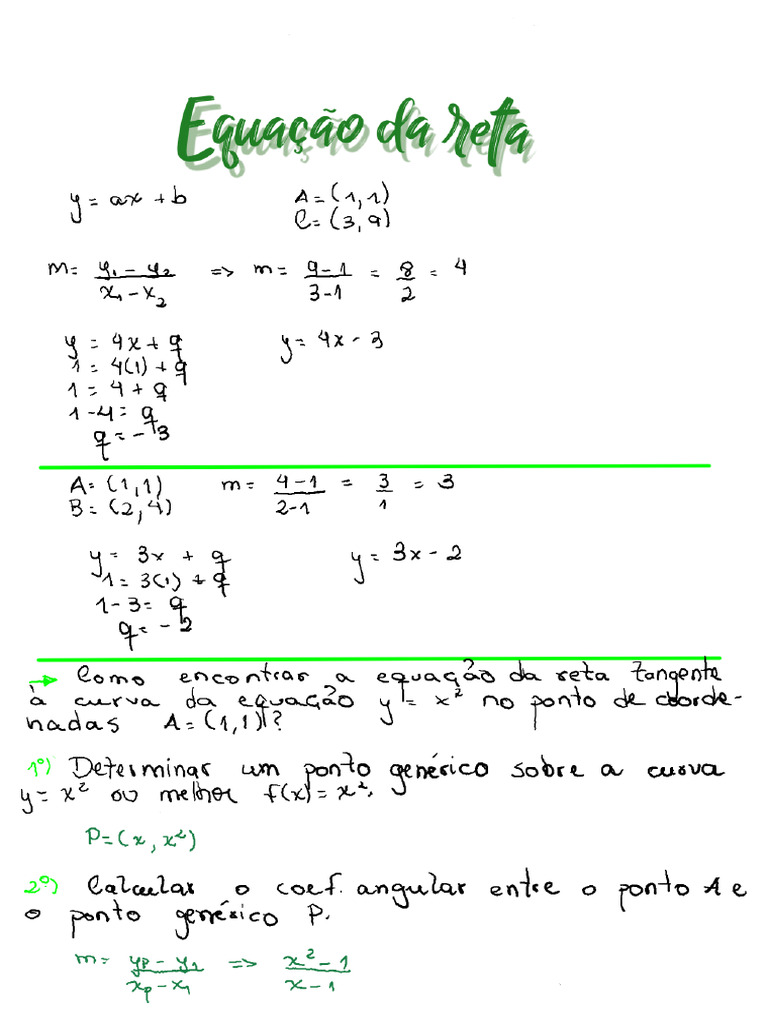 Equação da reta
y = ax + b
A = (1,1)
C = (3,9)
m = y₁ - y₂ / x₁ - x₂ => m = 9-1 / 3-1 = 8/2 = 4
y = 4x + q
y = 4x - 3
1 = 4(1) + q
1 = 4 + q
1-4 = q
q = -3
A = (1,1)
B = (2,4)
m = 4-1 / 2-1 = 3/1 = 3
y = 3x + q
y = 3x - 2
1 = 3(1) + q
1-3 = q
q = -2
→ Como encontrar a equação da reta tangente
à curva da equação y = x² no ponto de coorde-
nadas A = (1,1)?
1º) Determinar um ponto genérico sobre a curva
y = x² ou melhor f(x) = x².
P = (x, x²)
2º) Calcular o coef. angular entre o ponto A e
o ponto genérico P.
m = yp - y₁ / xp - x₁ => x² - 1 / x - 1